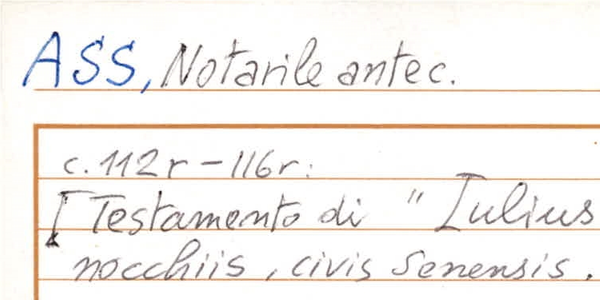 ASS, Notarile antec.
c. 112r - 116r:
[Testamento di " Iulius
nocchiis, civis Senensis.